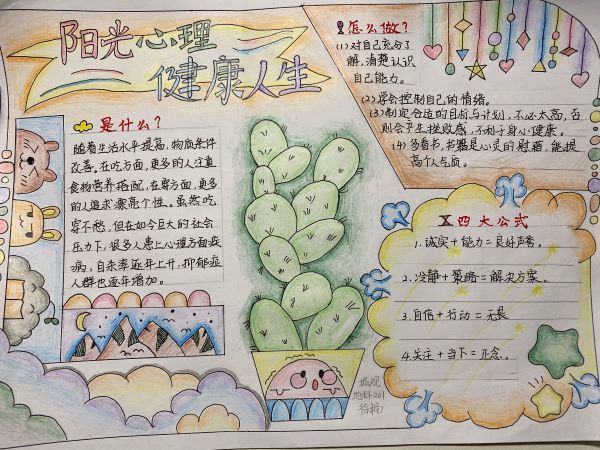 阳光心理
健康人生
是什么？
随着生活水平提高，物质条件
改善。在吃方面，更多的人注重
食物营养搭配，在穿方面，更多
的人追求漂亮个性。虽然吃
穿不愁，但在如今巨大的社会
压力下，很多人患上心理方面疾
病，自杀率逐年上升，抑郁症
人群也逐年增加。
怎么做？
(1) 对自己充分了
解，清楚认识
自己能力。
(2) 学会控制自己的情绪。
(3) 制定合适的目标与计划，不必太高，否
则会产生挫败感，不利于身心健康。
(4) 多看书，书籍是心灵的慰藉，能提
高个人气质。
四大公式
1. 诚实+能力=良好声誉。
2. 冷静+策略=解决方案。
3. 自信+行动=无畏
4. 关注+当下=正念。
城规
地科201